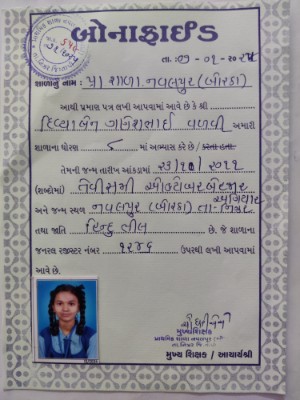 બોનાફાઈડ
તા. ૦૧-૦૧-૨૦૨૫
શાળાનું નામ : પ્રા શાળા નવલપુર (બોરકા)
આથી પ્રમાણ પત્ર લખી આપવામાં આવે છે કે શ્રી
દિવ્યાબેન ગણેશભાઈ વળવી અમારી
શાળાના ધોરણ ૮ માં અભ્યાસ કરે છે /
તેમની જન્મ તારીખ આંકડામાં ૨૩/૧૦/૨૦૧૧
(શબ્દોમાં) ત્રેવીસમી ઓક્ટોબર બેહજાર
અગિયાર
અને જન્મ સ્થળ નવલપુર (બોરકા) તા-નિઝર
તથા જાતિ હિન્દુ ભીલ છે. જે શાળાના
જનરલ રજીસ્ટર નંબર ૧૨૪૬ ઉપરથી લખી આપવામાં
આવે છે.
મુખ્યશિક્ષક
પ્રાથમિક શાળા નવલપુર
મુખ્ય શિક્ષક / આચાર્યશ્રી